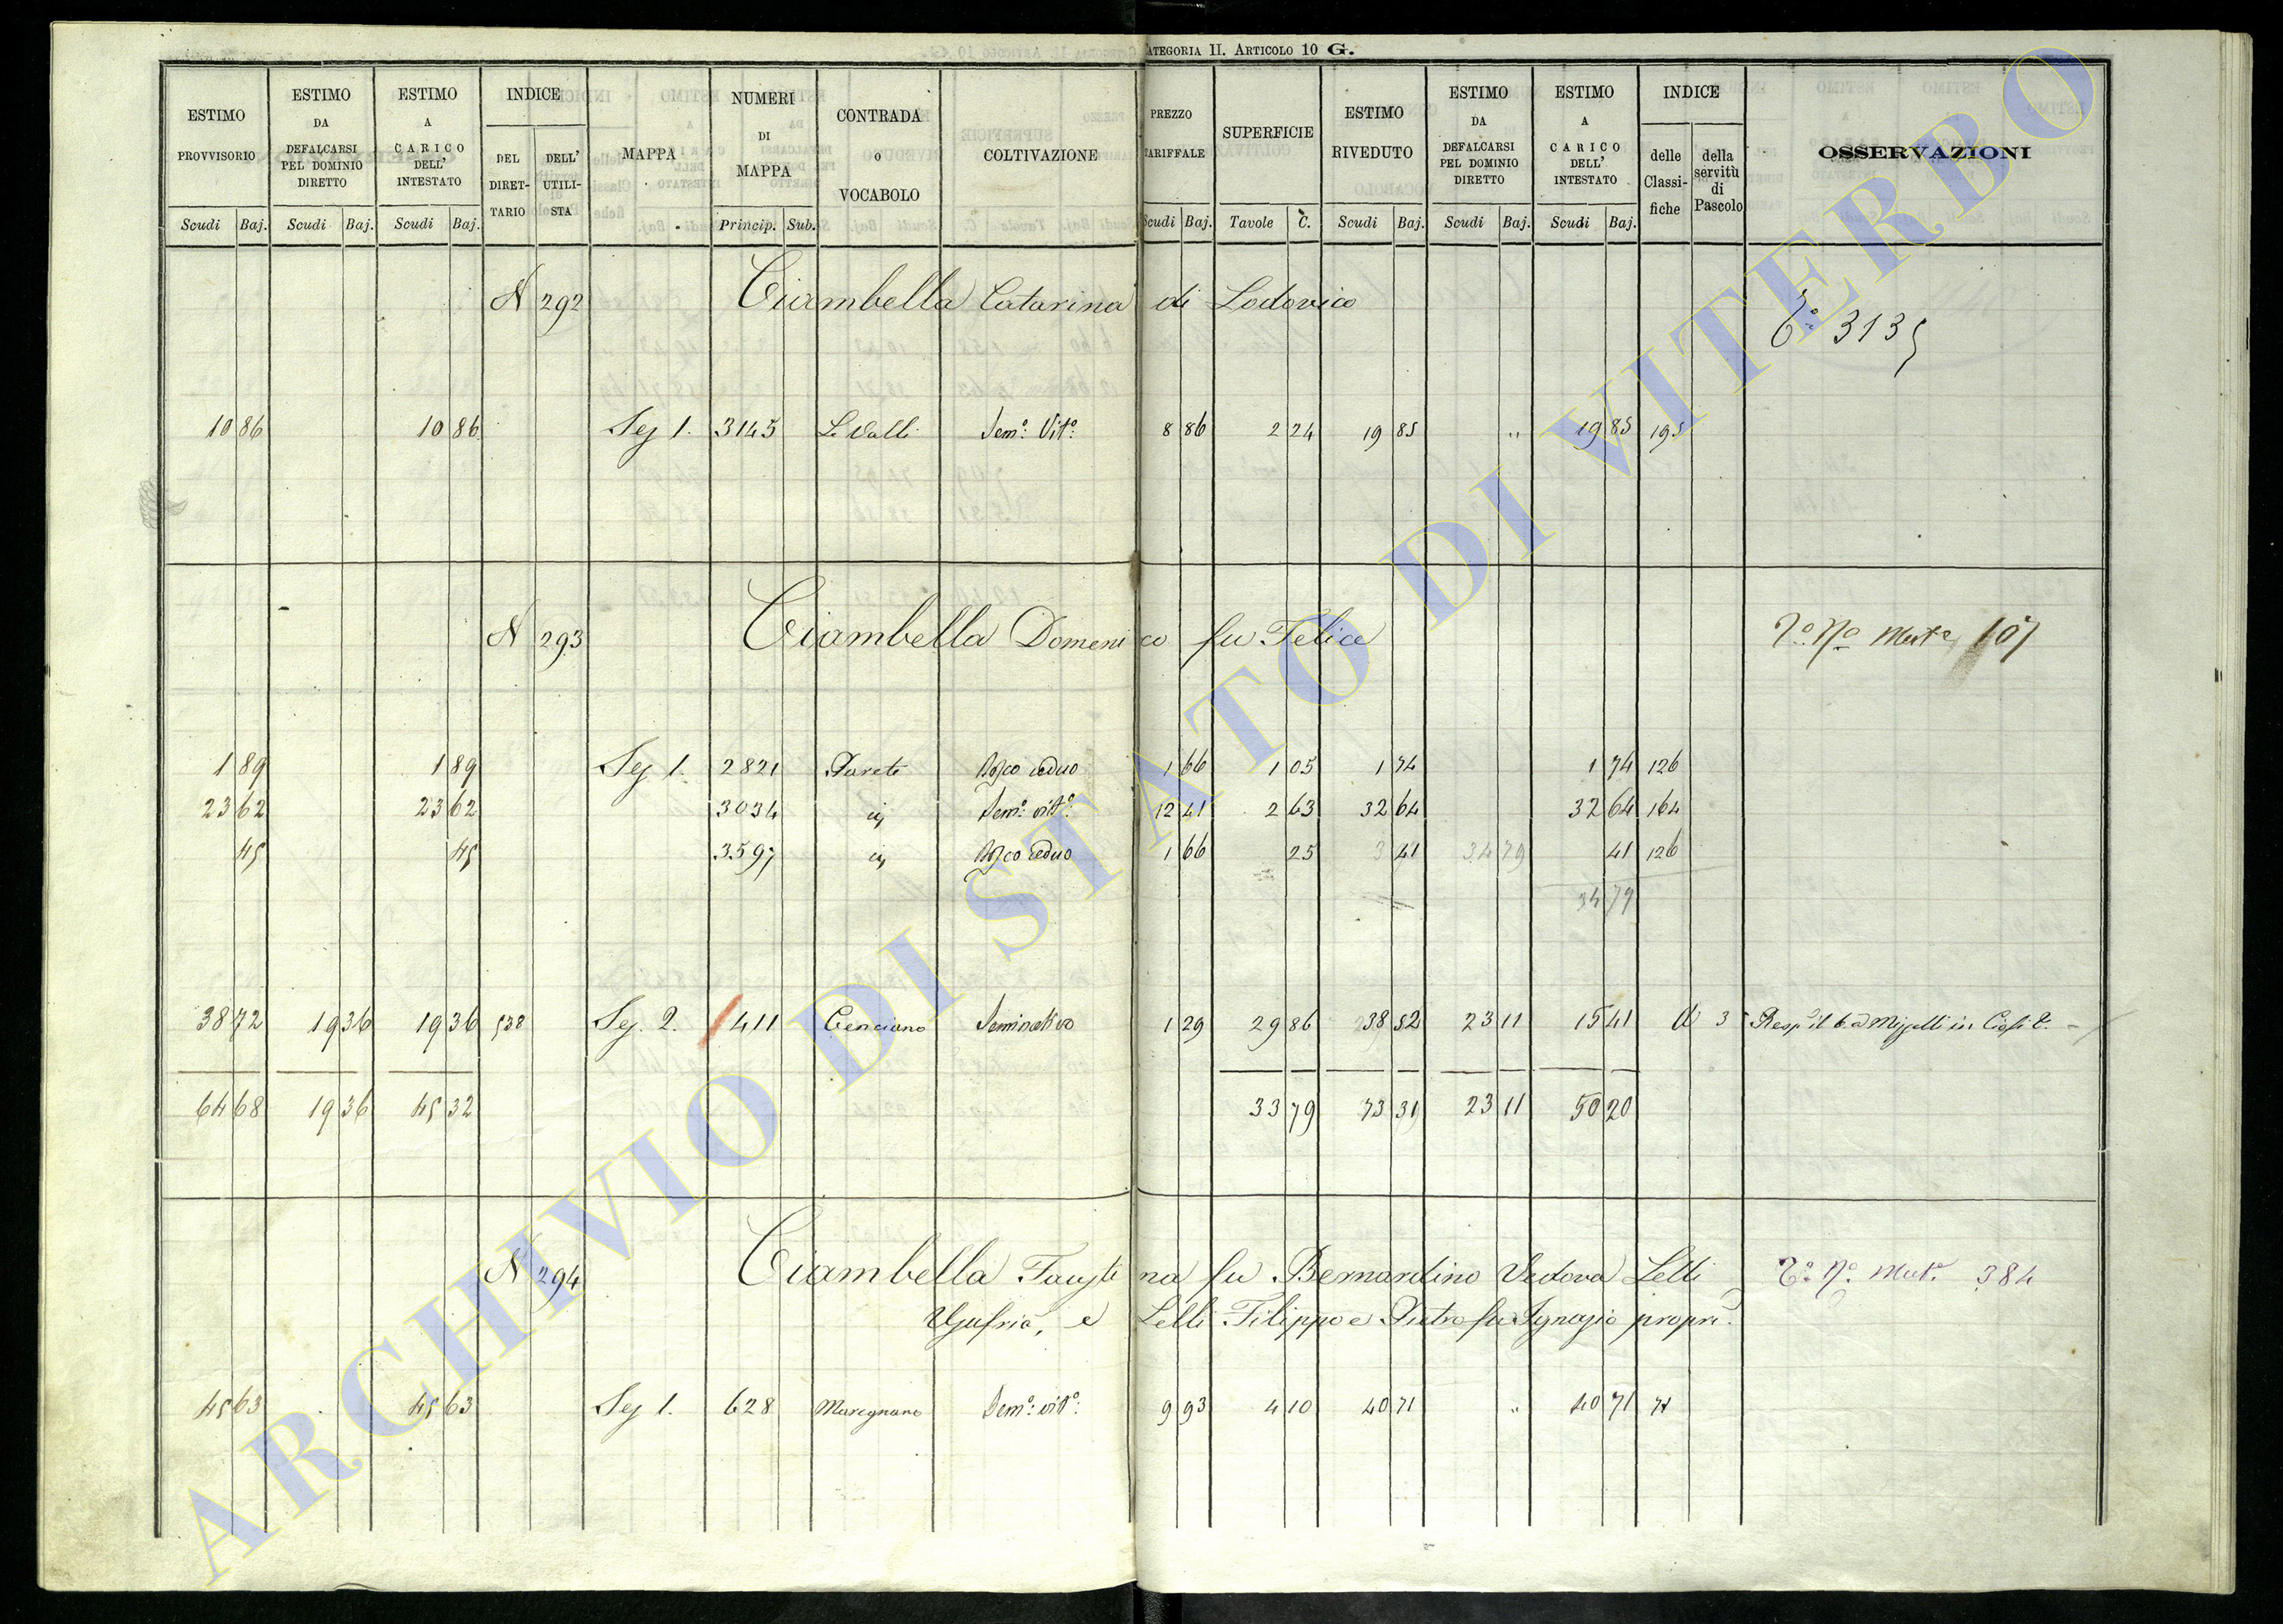 CATEGORIA II. ARTICOLO 10 G.
ESTIMO PROVVISORIO Scudi Baj. | ESTIMO DA DEFALCARSI PEL DOMINIO DIRETTO Scudi Baj. | ESTIMO A CARICO DELL' INTESTATO Scudi Baj. | INDICE DEL DIRETTARIO DELL' UTILISTA | MAPPA | NUMERI DI MAPPA Princip. Sub. | CONTRADA O VOCABOLO | COLTIVAZIONE | PREZZO TARIFFALE Scudi Baj. | SUPERFICIE Tavole C. | ESTIMO RIVEDUTO Scudi Baj. | ESTIMO DA DEFALCARSI PEL DOMINIO DIRETTO Scudi Baj. | ESTIMO A CARICO DELL' INTESTATO Scudi Baj. | INDICE delle Classifiche della servitù di Pascolo | OSSERVAZIONI
N 292 Ciambella Catarina di Lodovico
3135
10 86 10 86 Sez 1. 3145 Le Valli Sem.o Vit.o 8 86 2 24 19 85 " 19 85 195
N 293 Ciambella Domenico fu Felice 107
1 89 1 89 Sez 1. 2821 Parete Bosco ceduo 1 66 1 05 1 74 1 74 126
23 62 23 62 3034 Sem.o vit.o 12 41 2 63 32 64 32 64 164
45 45 3597 Bosco ceduo 1 66 25 41 34 79 41 126
34 79
38 72 19 36 19 36 538 Sez. 2. 411 Cenciano Seminativo 1 29 29 86 38 52 23 11 15 41 3
64 68 19 36 45 32 33 79 73 31 23 11 50 20
N 294 Ciambella Faustina fu Bernardino Vedova Lelli T.o N.o Mut.e 384
e Lelli Filippo e Pietro fu Ignazio propri.
45 63 45 63 Sez 1. 628 Maregnano Sem.o vit.o 9 93 4 10 40 71 " 40 71 71
ARCHIVIO DI STATO DI VITERBO